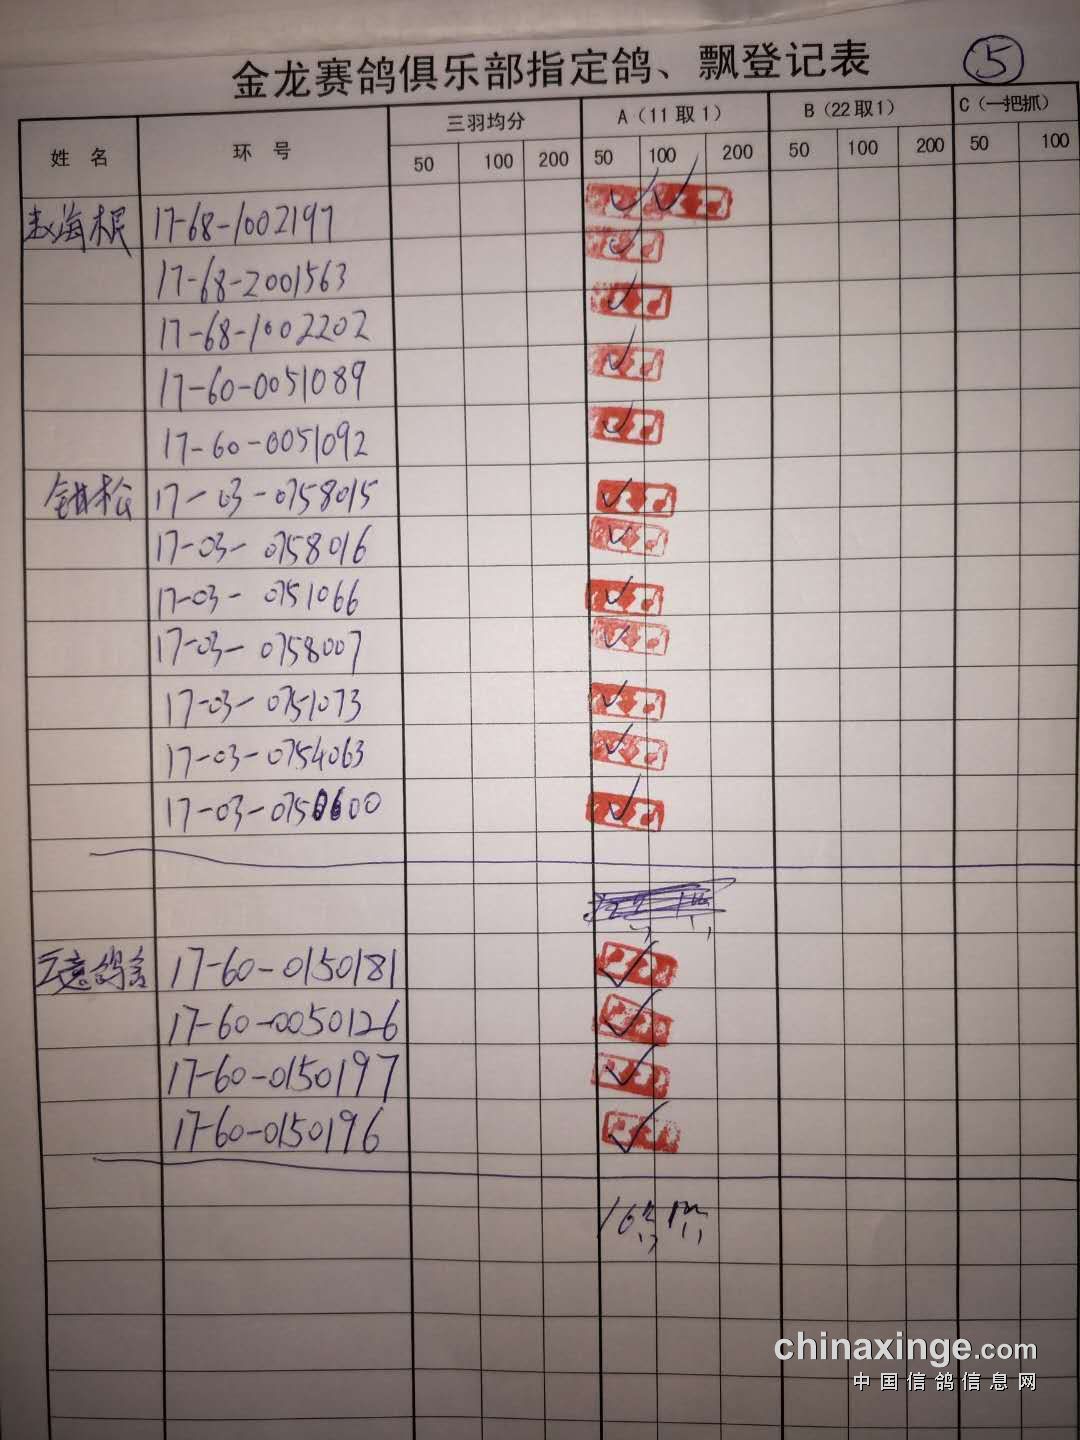 金龙赛鸽俱乐部指定鸽、飘登记表 5
姓 名 环 号 三羽均分 A(11取1) B(22取1) C(一把抓)
50 100 200 50 100 200 50 100 200 50 100
赵海根 17-68-1002197
17-68-2001563
17-68-1002202
17-60-0051089
17-60-0051092
17-03-0758015
17-03-0758016
17-03-0751066
17-03-0758007
17-03-0751073
17-03-0754063
17-03-0750600
17-60-0150181
17-60-0050126
17-60-0150197
17-60-0150196
chinaxinge.com
中国信鸽信息网